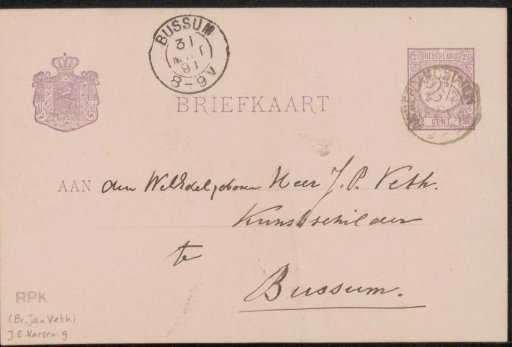 BUSSUM
31
91
8-9V
NEDERLAND
CENT
BRIEFKAART
AAN den WelEdelgeboren Heer J. P. Veth.
Kunstschilder
te
Bussum.
RPK
(Br. Jan Veth)
J. E. Karsen 9